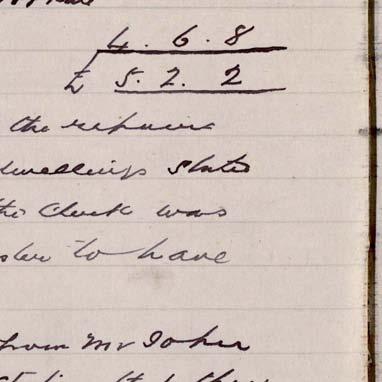 4 . 6 . 8
£ 5. 2. 2
the repairs
dwellings
the Clerk was
to have
from Mr John